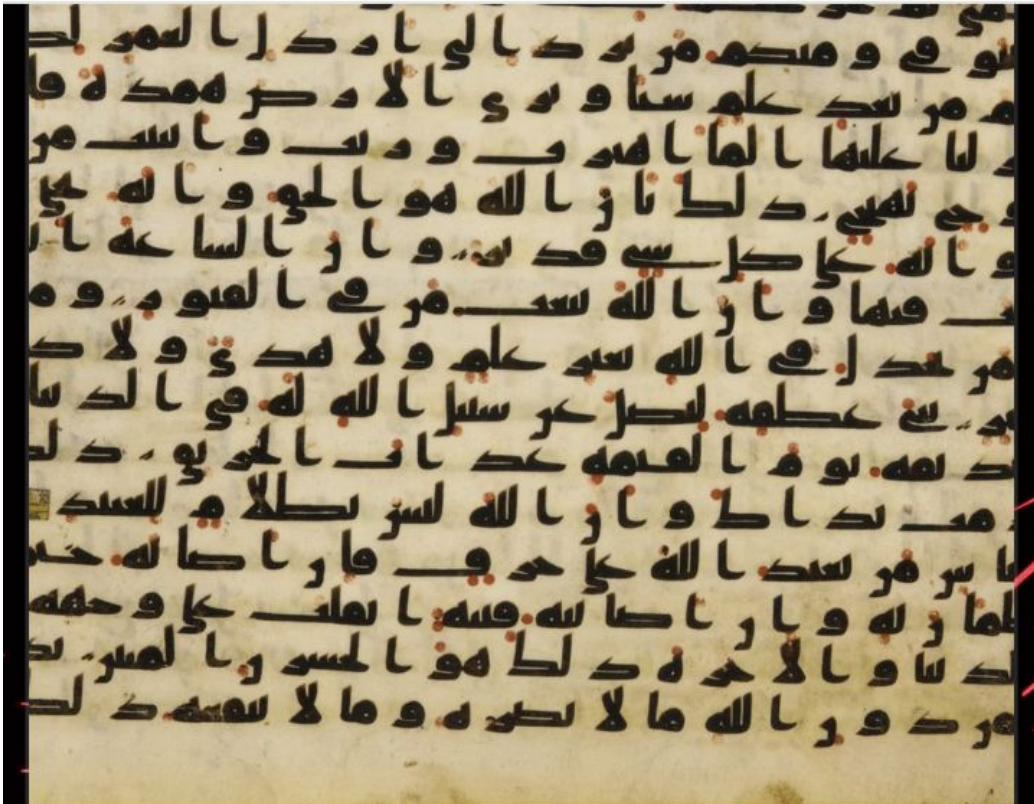 يتوفى ومنكم من يرد الى ارذل العمر لك
من بعد علم شيا وترى الارض همدة فا
لنا عليها الما اهتزت وربت وانبتت من
بهيج ذلك بان الله هو الحق وانه يحي
وانه على كل شي قدير وان الساعة ا
فيها وان الله يبعث من في القبور وم
من يجدل في الله بغير علم ولا هدى ولا ك
ثني عطفه ليضل عن سبيل الله له في الدنيا
نذيقه يوم القيمة عذاب الحريق ذلك
قدمت يداك وان الله ليس بظلام للعبيد
الناس من يعبد الله على حرف فان اصابه خير
اطمان به وان اصابته فتنة انقلب على وجهه
الدنيا والاخرة ذلك هو الخسرن المبين يد
من دون الله ما لا يضره وما لا ينفعه ذلك